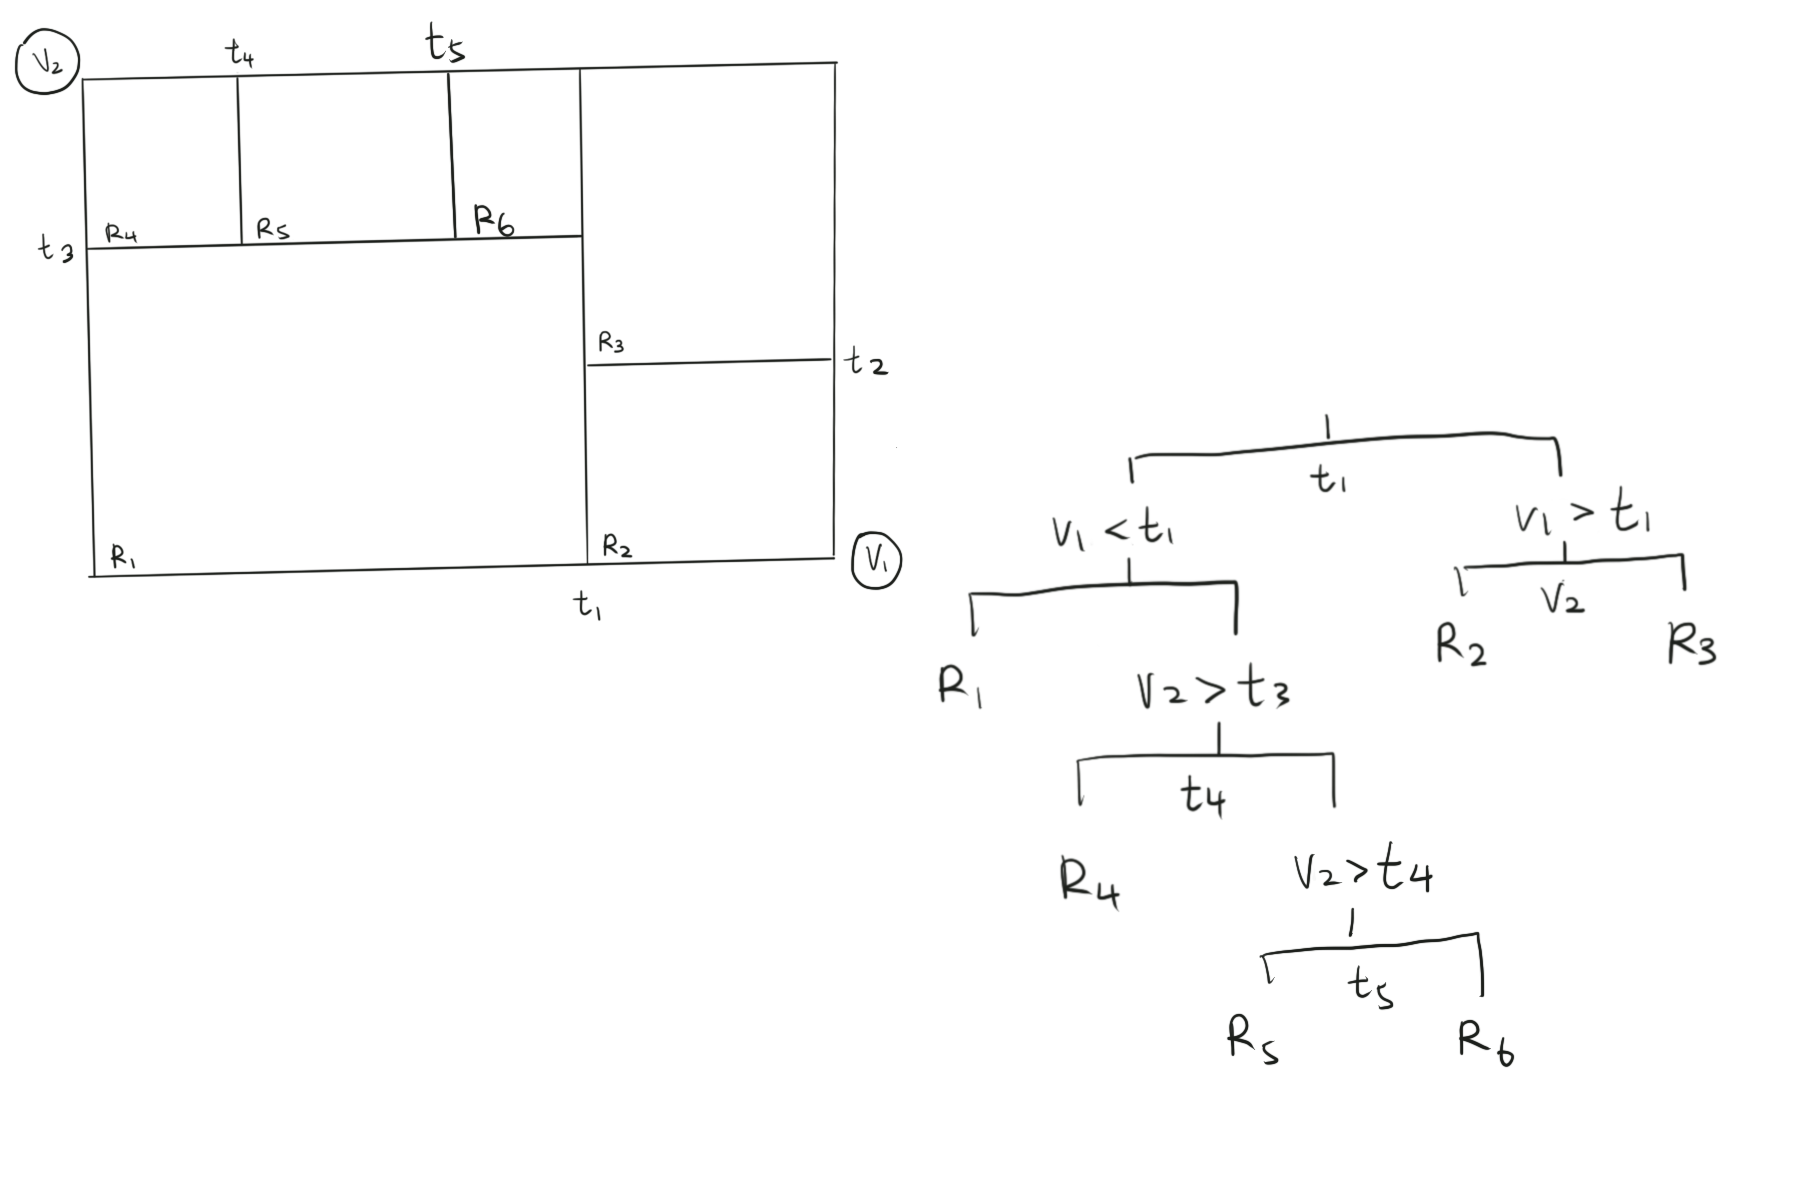 V₂
t₄
t₅
R₄
R₅
R₆
t₃
R₃
t₂
R₁
R₂
V₁
t₁
t₁
V₁ < t₁
V₁ > t₁
V₂
R₂
R₃
R₁
V₂ > t₃
t₄
R₄
V₂ > t₄
t₅
R₅
R₆